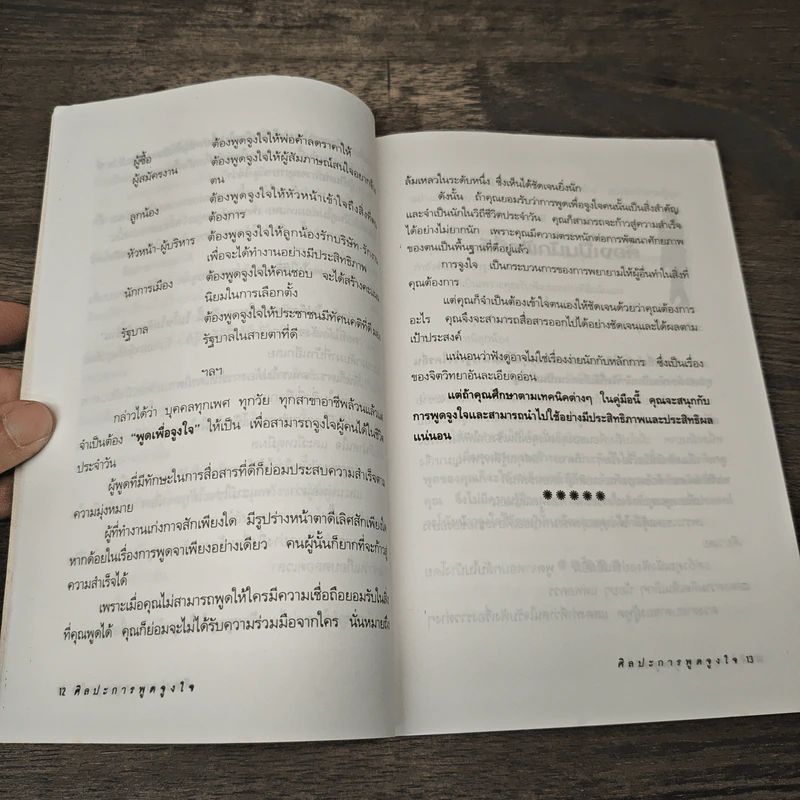 ผู้ซื้อ ต้องพูดจูงใจให้พ่อค้าลดราคาให้
ผู้สมัครงาน ต้องพูดจูงใจให้ผู้สัมภาษณ์สนใจ
ตน
ลูกน้อง ต้องพูดจูงใจให้หัวหน้าเข้าใจถึงสิ่งที่
ต้องการ
หัวหน้า-ผู้บริหาร ต้องพูดจูงใจให้ลูกน้องรักบริษัท-รักงาน
เพื่อจะได้ทำงานอย่างมีประสิทธิภาพ
นักการเมือง ต้องพูดจูงใจให้คนชอบ จะได้สร้าง
นิยมในการเลือกตั้ง
รัฐบาล ต้องพูดจูงใจให้ประชาชนมีทัศนคติที่ดี
รัฐบาลในสายตาที่ดี
ฯลฯ
กล่าวได้ว่า บุคคลทุกเพศ ทุกวัย ทุกสาขาอาชีพล้วนแล้ว
จำเป็นต้อง "พูดเพื่อจูงใจ" ให้เป็น เพื่อสามารถจูงใจผู้คนได้ในชีวิต
ประจำวัน
ผู้พูดที่มีทักษะในการสื่อสารที่ดีก็ย่อมประสบความสำเร็จตาม
ความมุ่งหมาย
ผู้ที่ทำงานเก่งกาจสักเพียงใด มีรูปร่างหน้าตาดีเลิศสักเพียงใด
หากด้อยในเรื่องการพูดจาเพียงอย่างเดียว คนผู้นั้นก็ยากที่จะก้าวสู่
ความสำเร็จได้
เพราะเมื่อคุณไม่สามารถพูดให้ใครมีความเชื่อถือยอมรับในสิ่ง
ที่คุณพูดได้ คุณก็ย่อมจะไม่ได้รับความร่วมมือจากใคร นั่นหมายถึง
12 ศิลปะการพูดจูงใจ
ล้มเหลวในระดับหนึ่ง ซึ่งเห็นได้ชัดเจนยิ่งนัก
ดังนั้น ถ้าคุณยอมรับว่าการพูดเพื่อจูงใจคนนั้นเป็นสิ่งสำคัญ
และจำเป็นนักในวิถีชีวิตประจำวัน คุณก็สามารถจะก้าวสู่ความสำเร็จ
ได้อย่างไม่ยากนัก เพราะคุณมีความตระหนักต่อการพัฒนาศักยภาพ
ของตนเป็นพื้นฐานที่ดีอยู่แล้ว
การจูงใจ เป็นกระบวนการของการพยายามให้ผู้อื่นทำในสิ่งที่
คุณต้องการ
แต่คุณก็จำเป็นต้องเข้าใจตนเองให้ชัดเจนด้วยว่าคุณต้องการ
อะไร คุณจึงจะสามารถสื่อสารออกไปได้อย่างชัดเจนและได้ผลตาม
เป้าประสงค์
แน่นอนว่าฟังดูอาจไม่ใช่เรื่องง่ายนักกับหลักการ ซึ่งเป็นเรื่อง
ของจิตวิทยาอันละเอียดอ่อน
แต่ถ้าคุณศึกษาตามเทคนิคต่างๆ ในคู่มือนี้ คุณจะสนุกกับ
การพูดจูงใจและสามารถนำไปใช้อย่างมีประสิทธิภาพและประสิทธิผล
แน่นอน
ศิลปะการพูดจูงใจ 13